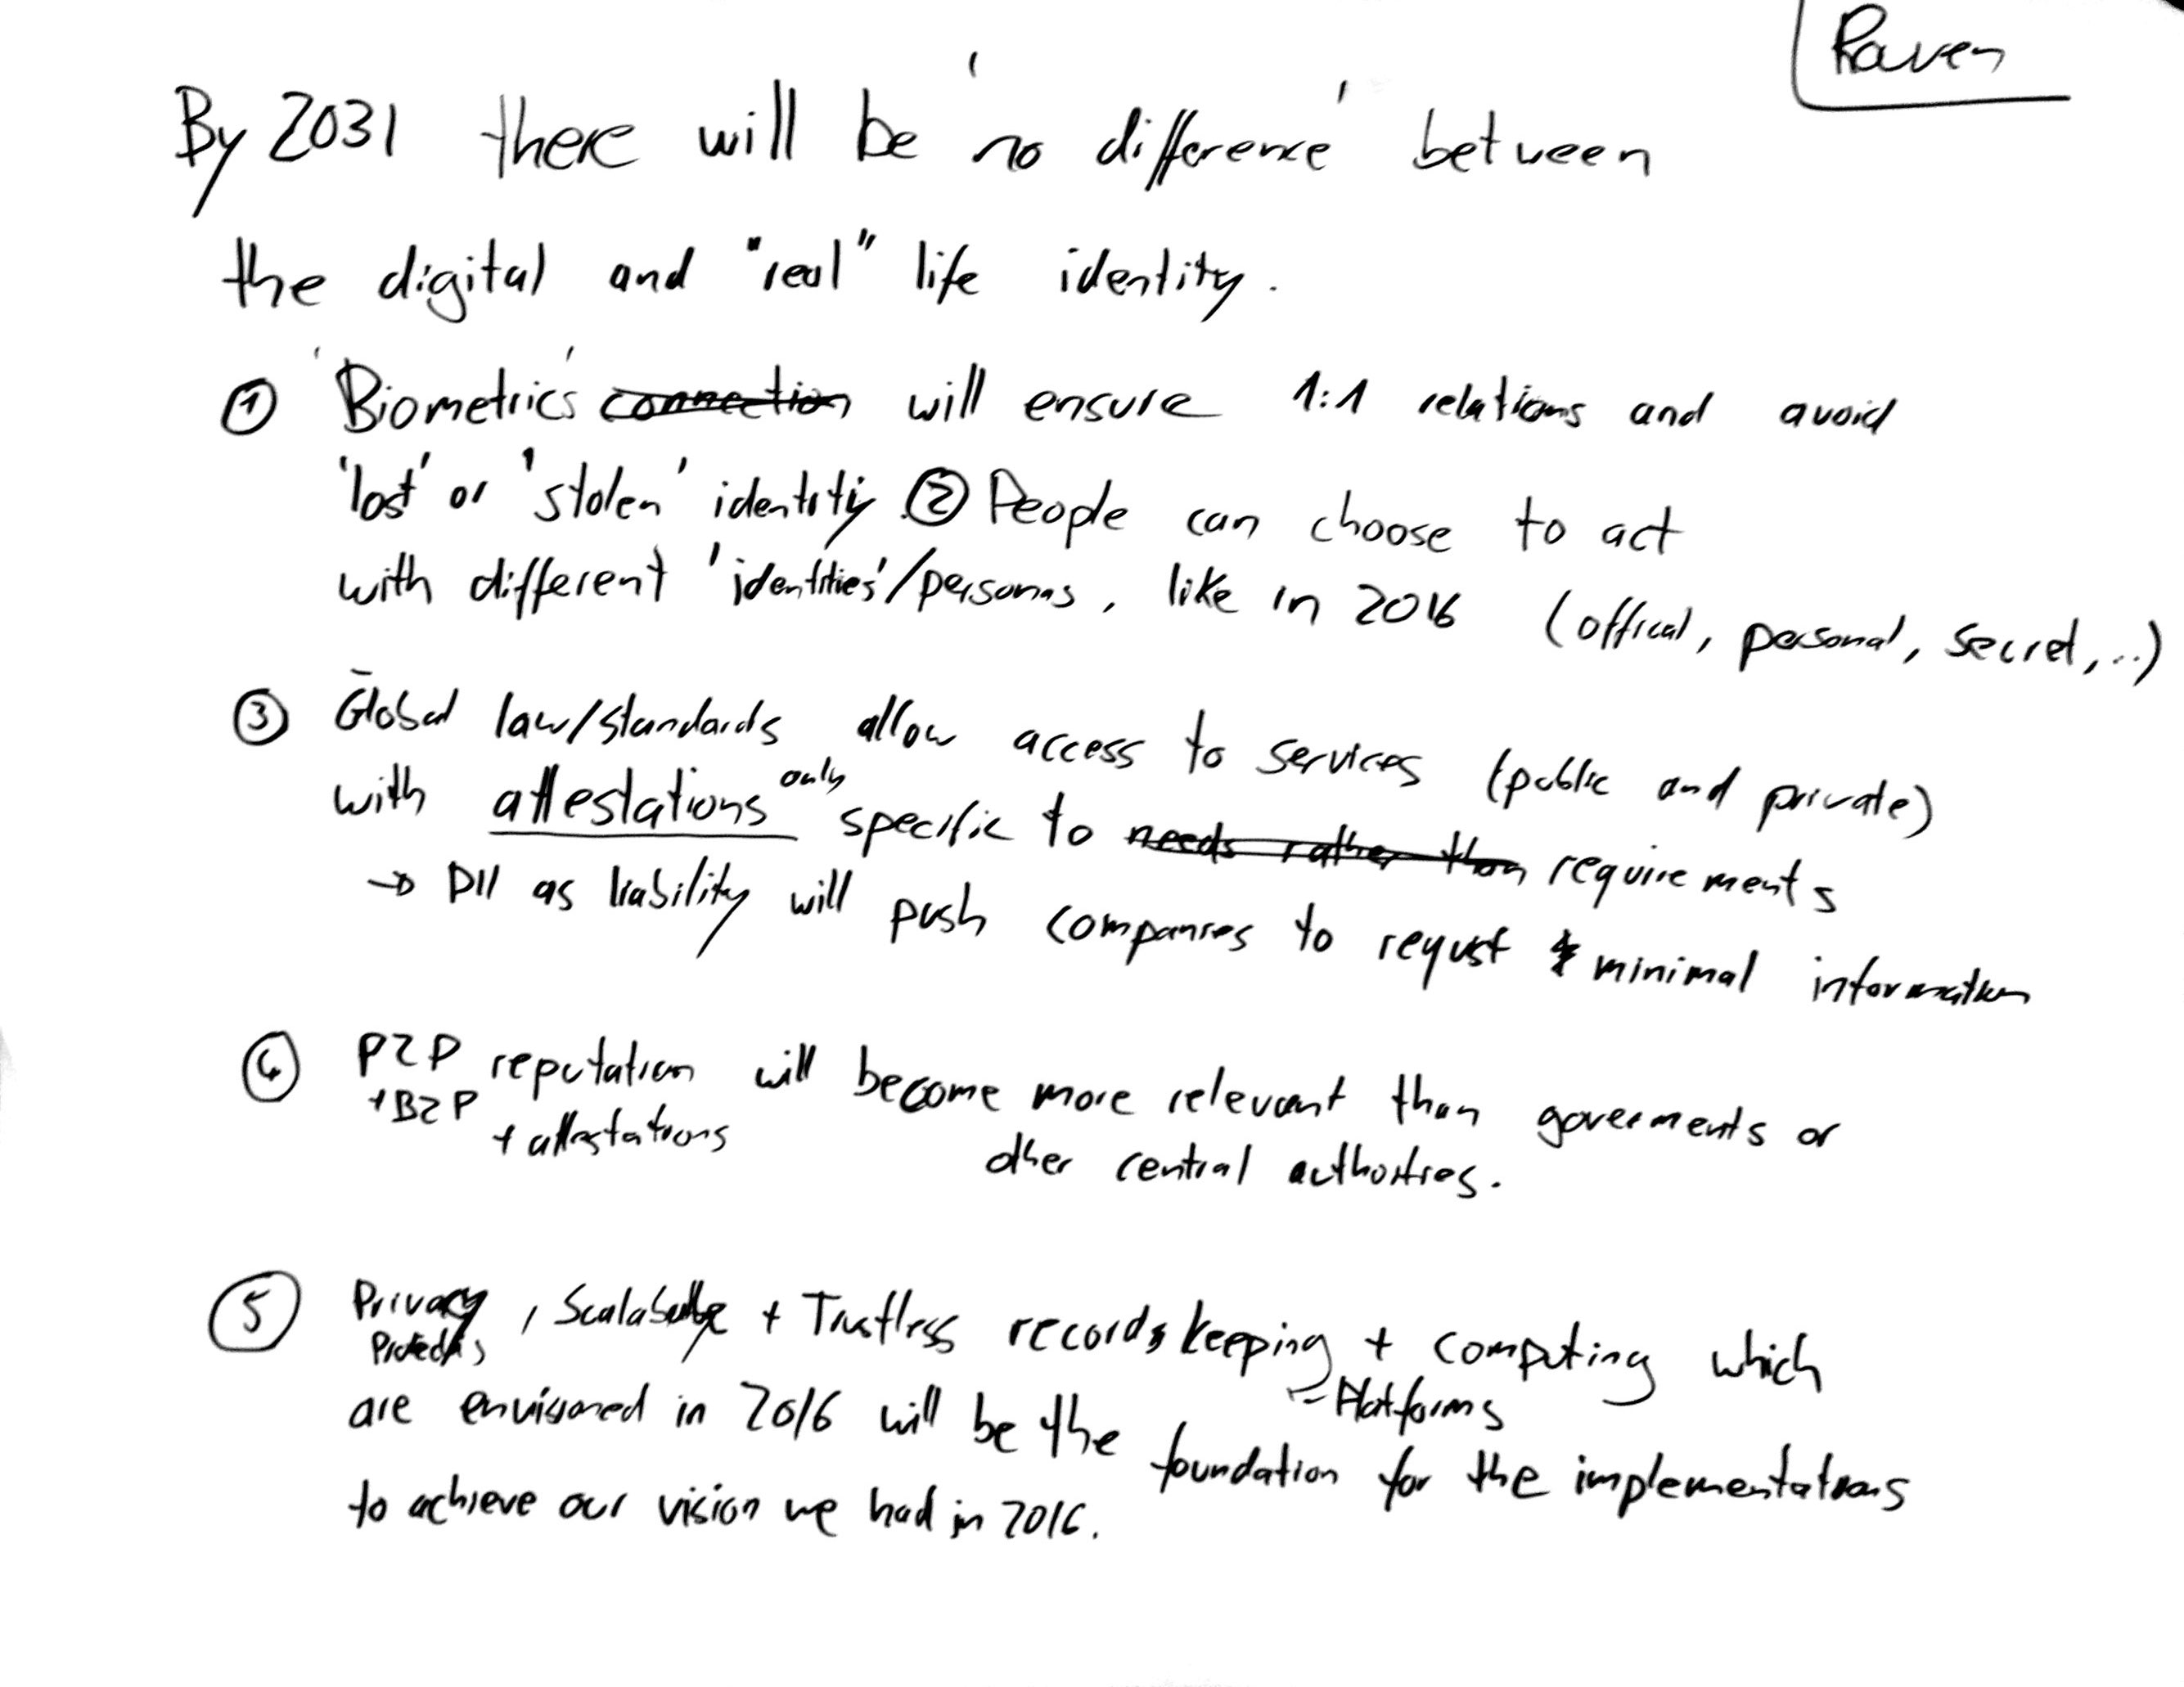 Raven
By 2031 there will be 'no difference' between
the digital and "real" life identity.
① 'Biometrics' connection will ensure 1:1 relations and avoid
'lost' or 'stolen' identity. ② People can choose to act
with different 'identities'/personas, like in 2016 (offical, personal, secret,..)
③ Global law/standards allow access to services (public and private)
with attestations only specific to needs rather than requirements
→ PII as liability will push companies to requst minimal information
④ P2P reputation will become more relevant than goverments or
+B2P + attestations other central authorities.
⑤ Privacy , Scalable + Trustless records keeping + computing which
= Platforms
are envisioned in 2016 will be the foundation for the implementations
to achieve our vision we had in 2016.